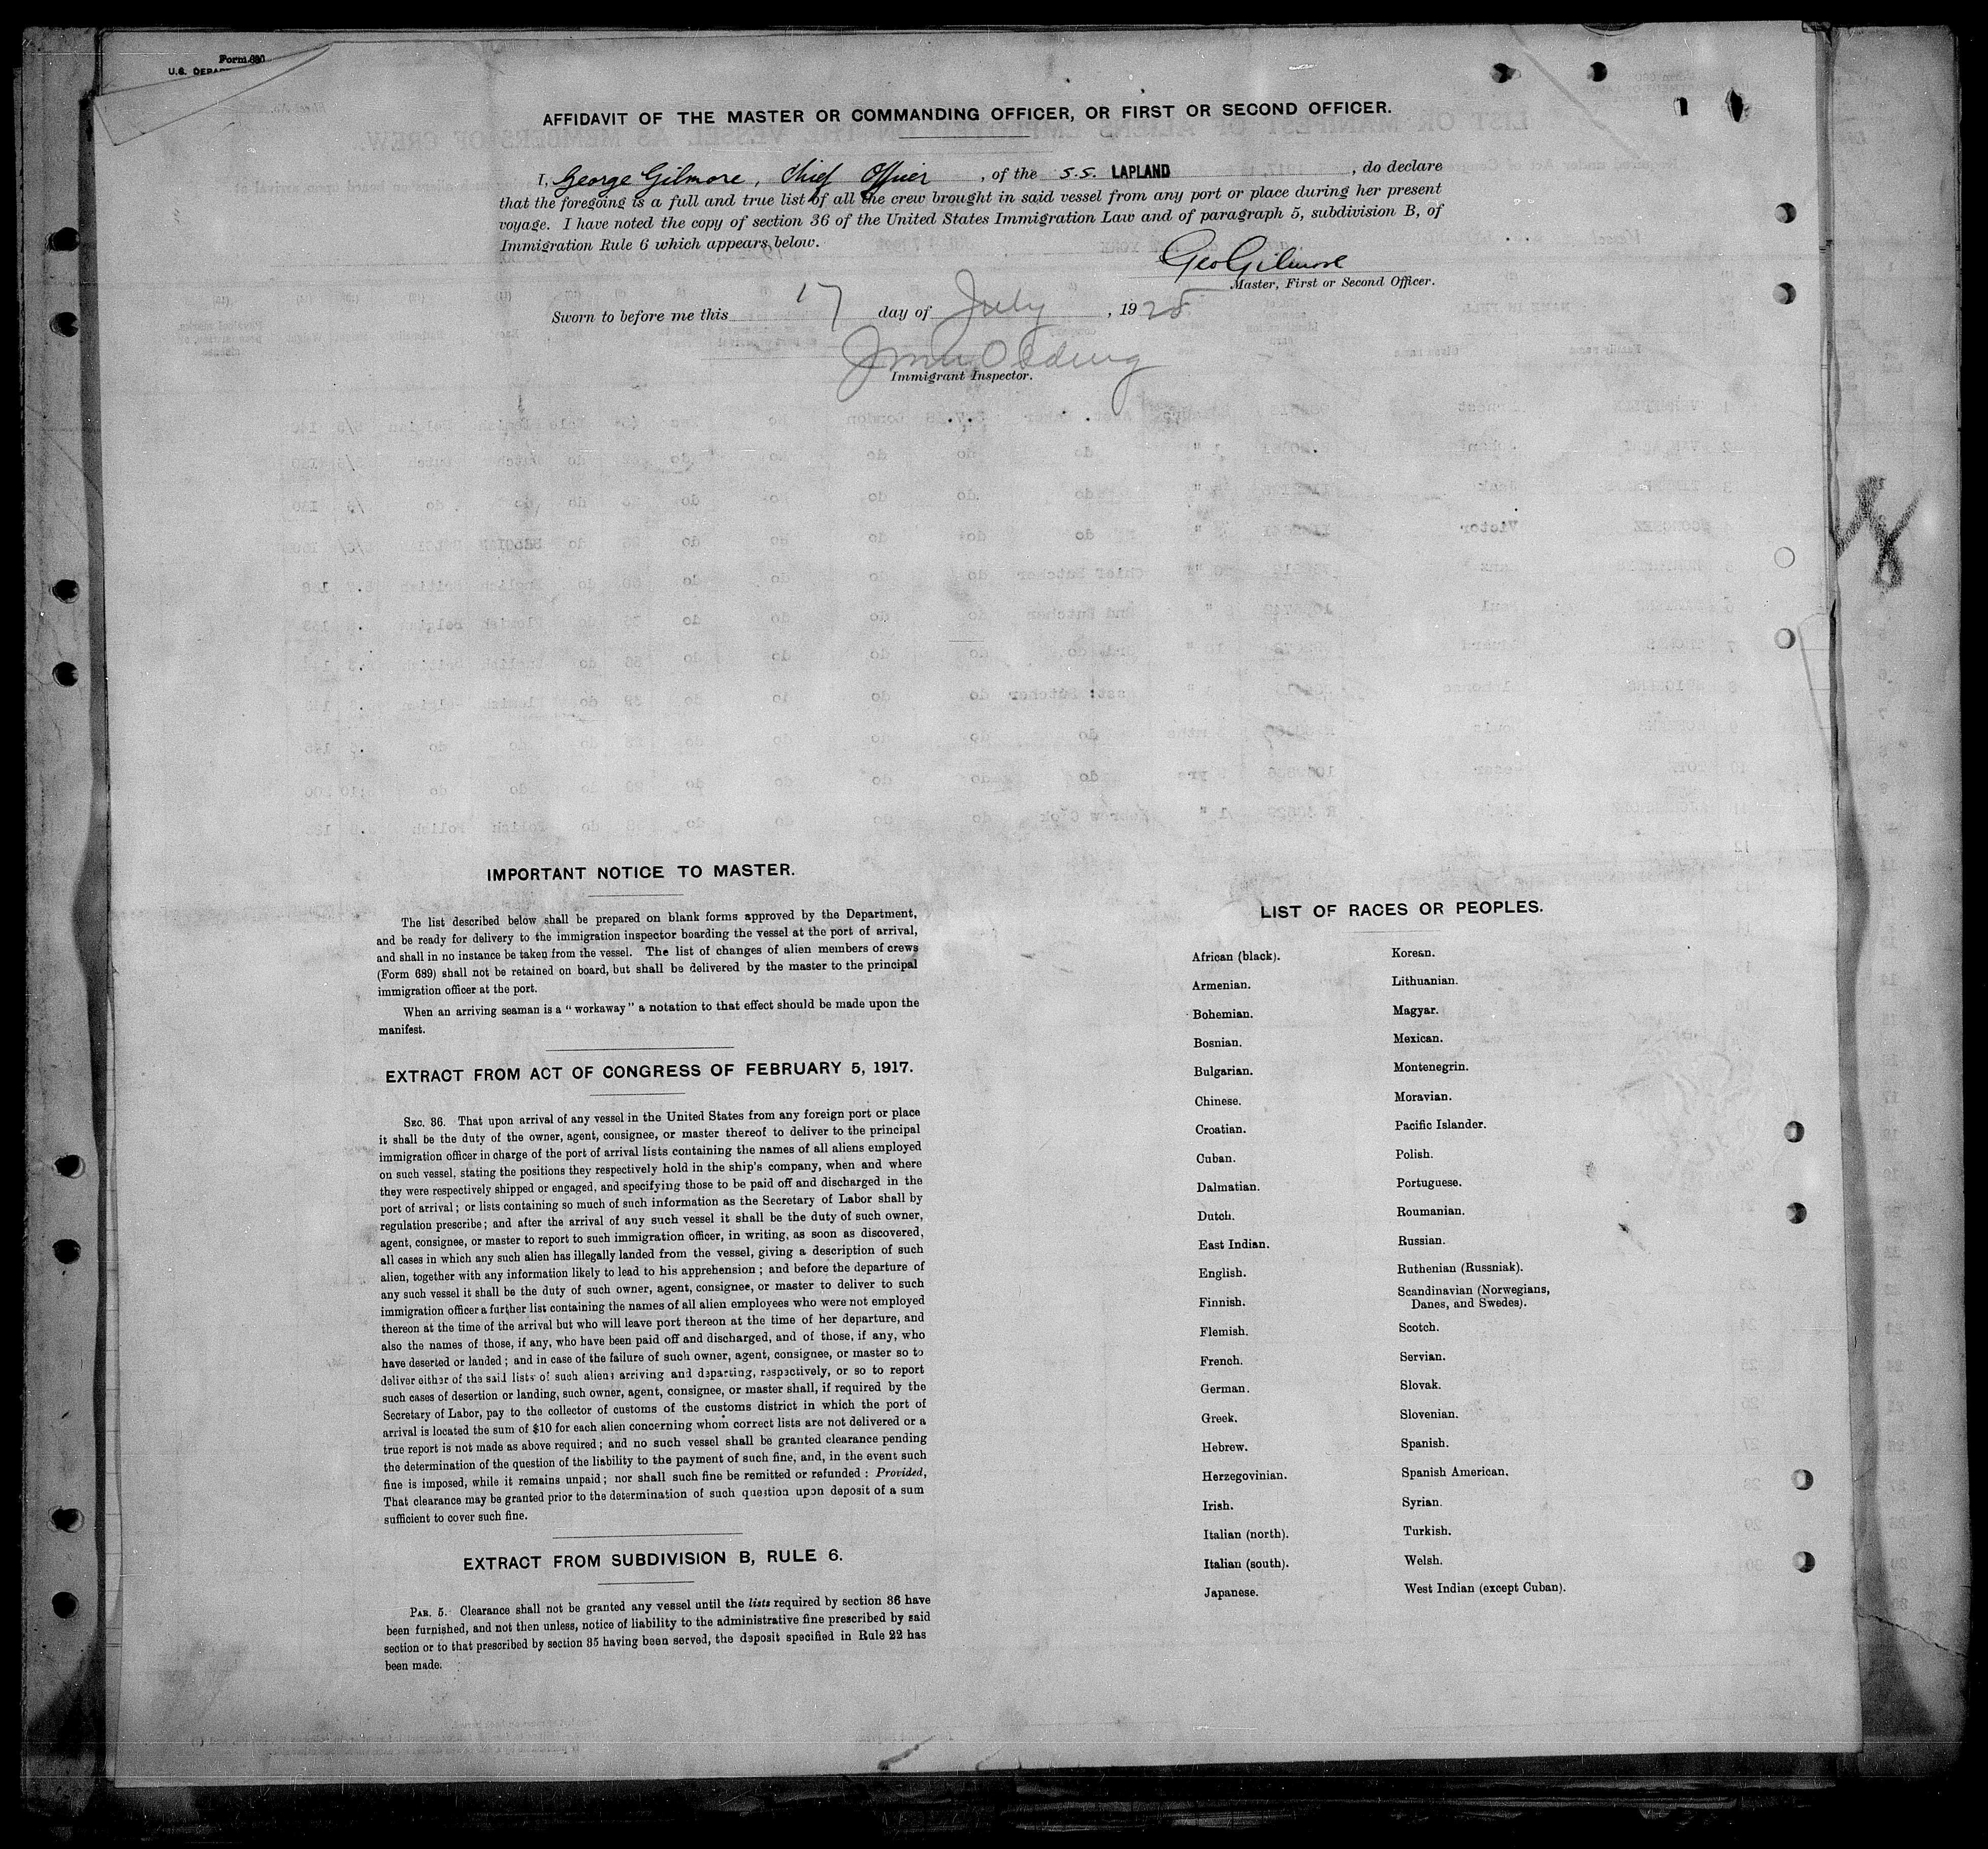 Form 680
U.S. DEPA
AFFIDAVIT OF THE MASTER OR COMMANDING OFFICER, OR FIRST OR SECOND OFFICER.
I, George Gilmore, Chief Officer, of the S.S. LAPLAND, do declare
that the foregoing is a full and true list of all the crew brought in said vessel from any port or place during her present
voyage. I have noted the copy of section 36 of the United States Immigration Law and of paragraph 5, subdivision B, of
Immigration Rule 6 which appears below.
Geo Gilmore
Master, First or Second Officer.
Sworn to before me this 17 day of July, 1928
Immigrant Inspector.
IMPORTANT NOTICE TO MASTER.
The list described below shall be prepared on blank forms approved by the Department,
and be ready for delivery to the immigration inspector boarding the vessel at the port of arrival,
and shall in no instance be taken from the vessel. The list of changes of alien members of crews
(Form 689) shall not be retained on board, but shall be delivered by the master to the principal
immigration officer at the port.
When an arriving seaman is a "workaway" a notation to that effect should be made upon the
manifest.
EXTRACT FROM ACT OF CONGRESS OF FEBRUARY 5, 1917.
SEC. 36. That upon arrival of any vessel in the United States from any foreign port or place
it shall be the duty of the owner, agent, consignee, or master thereof to deliver to the principal
immigration officer in charge of the port of arrival lists containing the names of all aliens employed
on such vessel, stating the positions they respectively hold in the ship's company, when and where
they were respectively shipped or engaged, and specifying those to be paid off and discharged in the
port of arrival; or lists containing so much of such information as the Secretary of Labor shall by
regulation prescribe; and after the arrival of any such vessel it shall be the duty of such owner,
agent, consignee, or master to report to such immigration officer, in writing, as soon as discovered,
all cases in which any such alien has illegally landed from the vessel, giving a description of such
alien, together with any information likely to lead to his apprehension; and before the departure of
any such vessel it shall be the duty of such owner, agent, consignee, or master to deliver to such
immigration officer a further list containing the names of all alien employees who were not employed
thereon at the time of the arrival but who will leave port thereon at the time of her departure, and
also the names of those, if any, who have been paid off and discharged, and of those, if any, who
have deserted or landed; and in case of the failure of such owner, agent, consignee, or master so to
deliver either of the said lists of such aliens arriving and departing, respectively, or so to report
such cases of desertion or landing, such owner, agent, consignee, or master shall, if required by the
Secretary of Labor, pay to the collector of customs of the customs district in which the port of
arrival is located the sum of $10 for each alien concerning whom correct lists are not delivered or a
true report is not made as above required; and no such vessel shall be granted clearance pending
the determination of the question of the liability to the payment of such fine, and, in the event such
fine is imposed, while it remains unpaid; nor shall such fine be remitted or refunded: Provided,
That clearance may be granted prior to the determination of such question upon deposit of a sum
sufficient to cover such fine.
EXTRACT FROM SUBDIVISION B, RULE 6.
PAR. 5. Clearance shall not be granted any vessel until the lists required by section 36 have
been furnished, and not then unless, notice of liability to the administrative fine prescribed by said
section or to that prescribed by section 35 having been served, the deposit specified in Rule 22 has
been made.
LIST OF RACES OR PEOPLES.
African (black).
Armenian.
Bohemian.
Bosnian.
Bulgarian.
Chinese.
Croatian.
Cuban.
Dalmatian.
Dutch.
East Indian.
English.
Finnish.
Flemish.
French.
German.
Greek.
Hebrew.
Herzegovinian.
Irish.
Italian (north).
Italian (south).
Japanese.
Korean.
Lithuanian.
Magyar.
Mexican.
Montenegrin.
Moravian.
Pacific Islander.
Polish.
Portuguese.
Roumanian.
Russian.
Ruthenian (Russniak).
Scandinavian (Norwegians,
Danes, and Swedes).
Scotch.
Servian.
Slovak.
Slovenian.
Spanish.
Spanish American.
Syrian.
Turkish.
Welsh.
West Indian (except Cuban).